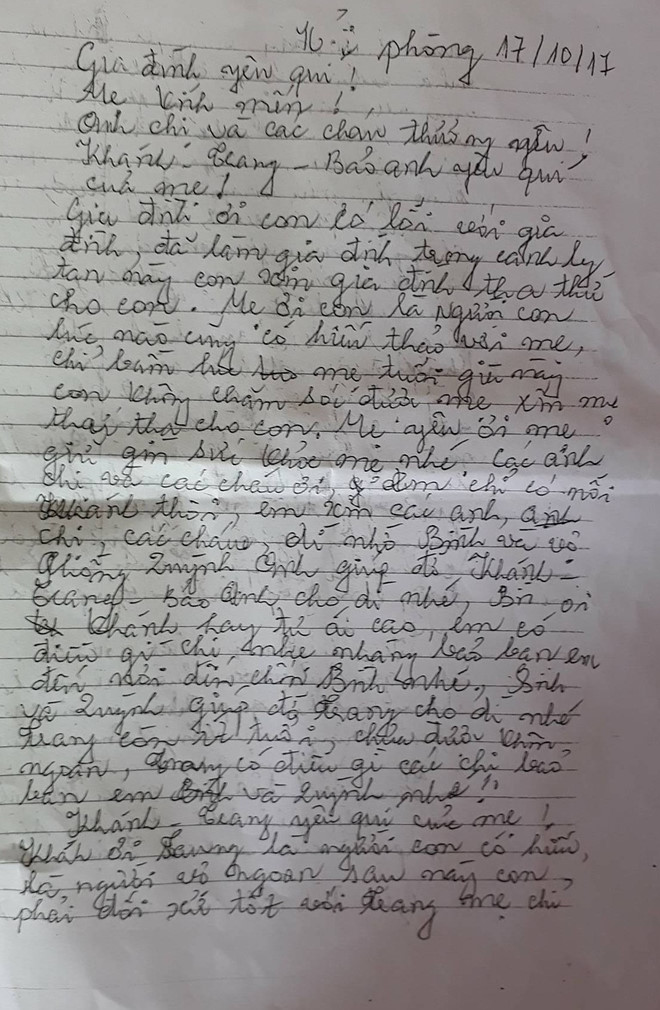 Hải phòng 17/10/17
Gia đình yêu quí !
Mẹ kính mến !
Anh chị và các cháu thương yêu !
Khánh - Trang - Bảo anh yêu quí
của mẹ !
Gia đình ơi con có lỗi với gia
đình, đã làm gia đình trong cảnh ly
tan này con xin gia đình tha thứ
cho con. Mẹ ơi con là người con
lúc nào cũng có hiếu thảo với mẹ,
chỉ mẹ tuổi già này
con không chăm sóc được mẹ xin mẹ
tha cho con. Mẹ yêu ơi mẹ
giữ gìn sức khỏe mẹ nhé các anh
chị và các cháu ơi, em chỉ có nỗi
Khánh thôi, em xin các anh, anh
chị, các cháu, dì nhờ Bình và vợ
chồng Quỳnh Anh giúp đỡ Khánh -
Trang - Bảo Anh cho dì nhé, Bin ơi
Khánh hay tự ái cao, em có
điều gì chị nhẹ nhàng bảo ban em
đến nơi đến chốn Bình nhé, Bình
và Quỳnh giúp đỡ Trang cho dì nhé
Trang còn ít tuổi, chưa được khôn
ngoan, Trang có điều gì các chị bảo
ban em và Quỳnh nhé !
Khánh - Trang yêu quí của mẹ !
Khánh ơi Trang là người con có hiếu,
là người vợ ngoan sau này con
phải đối xử tốt với Trang mẹ chỉ